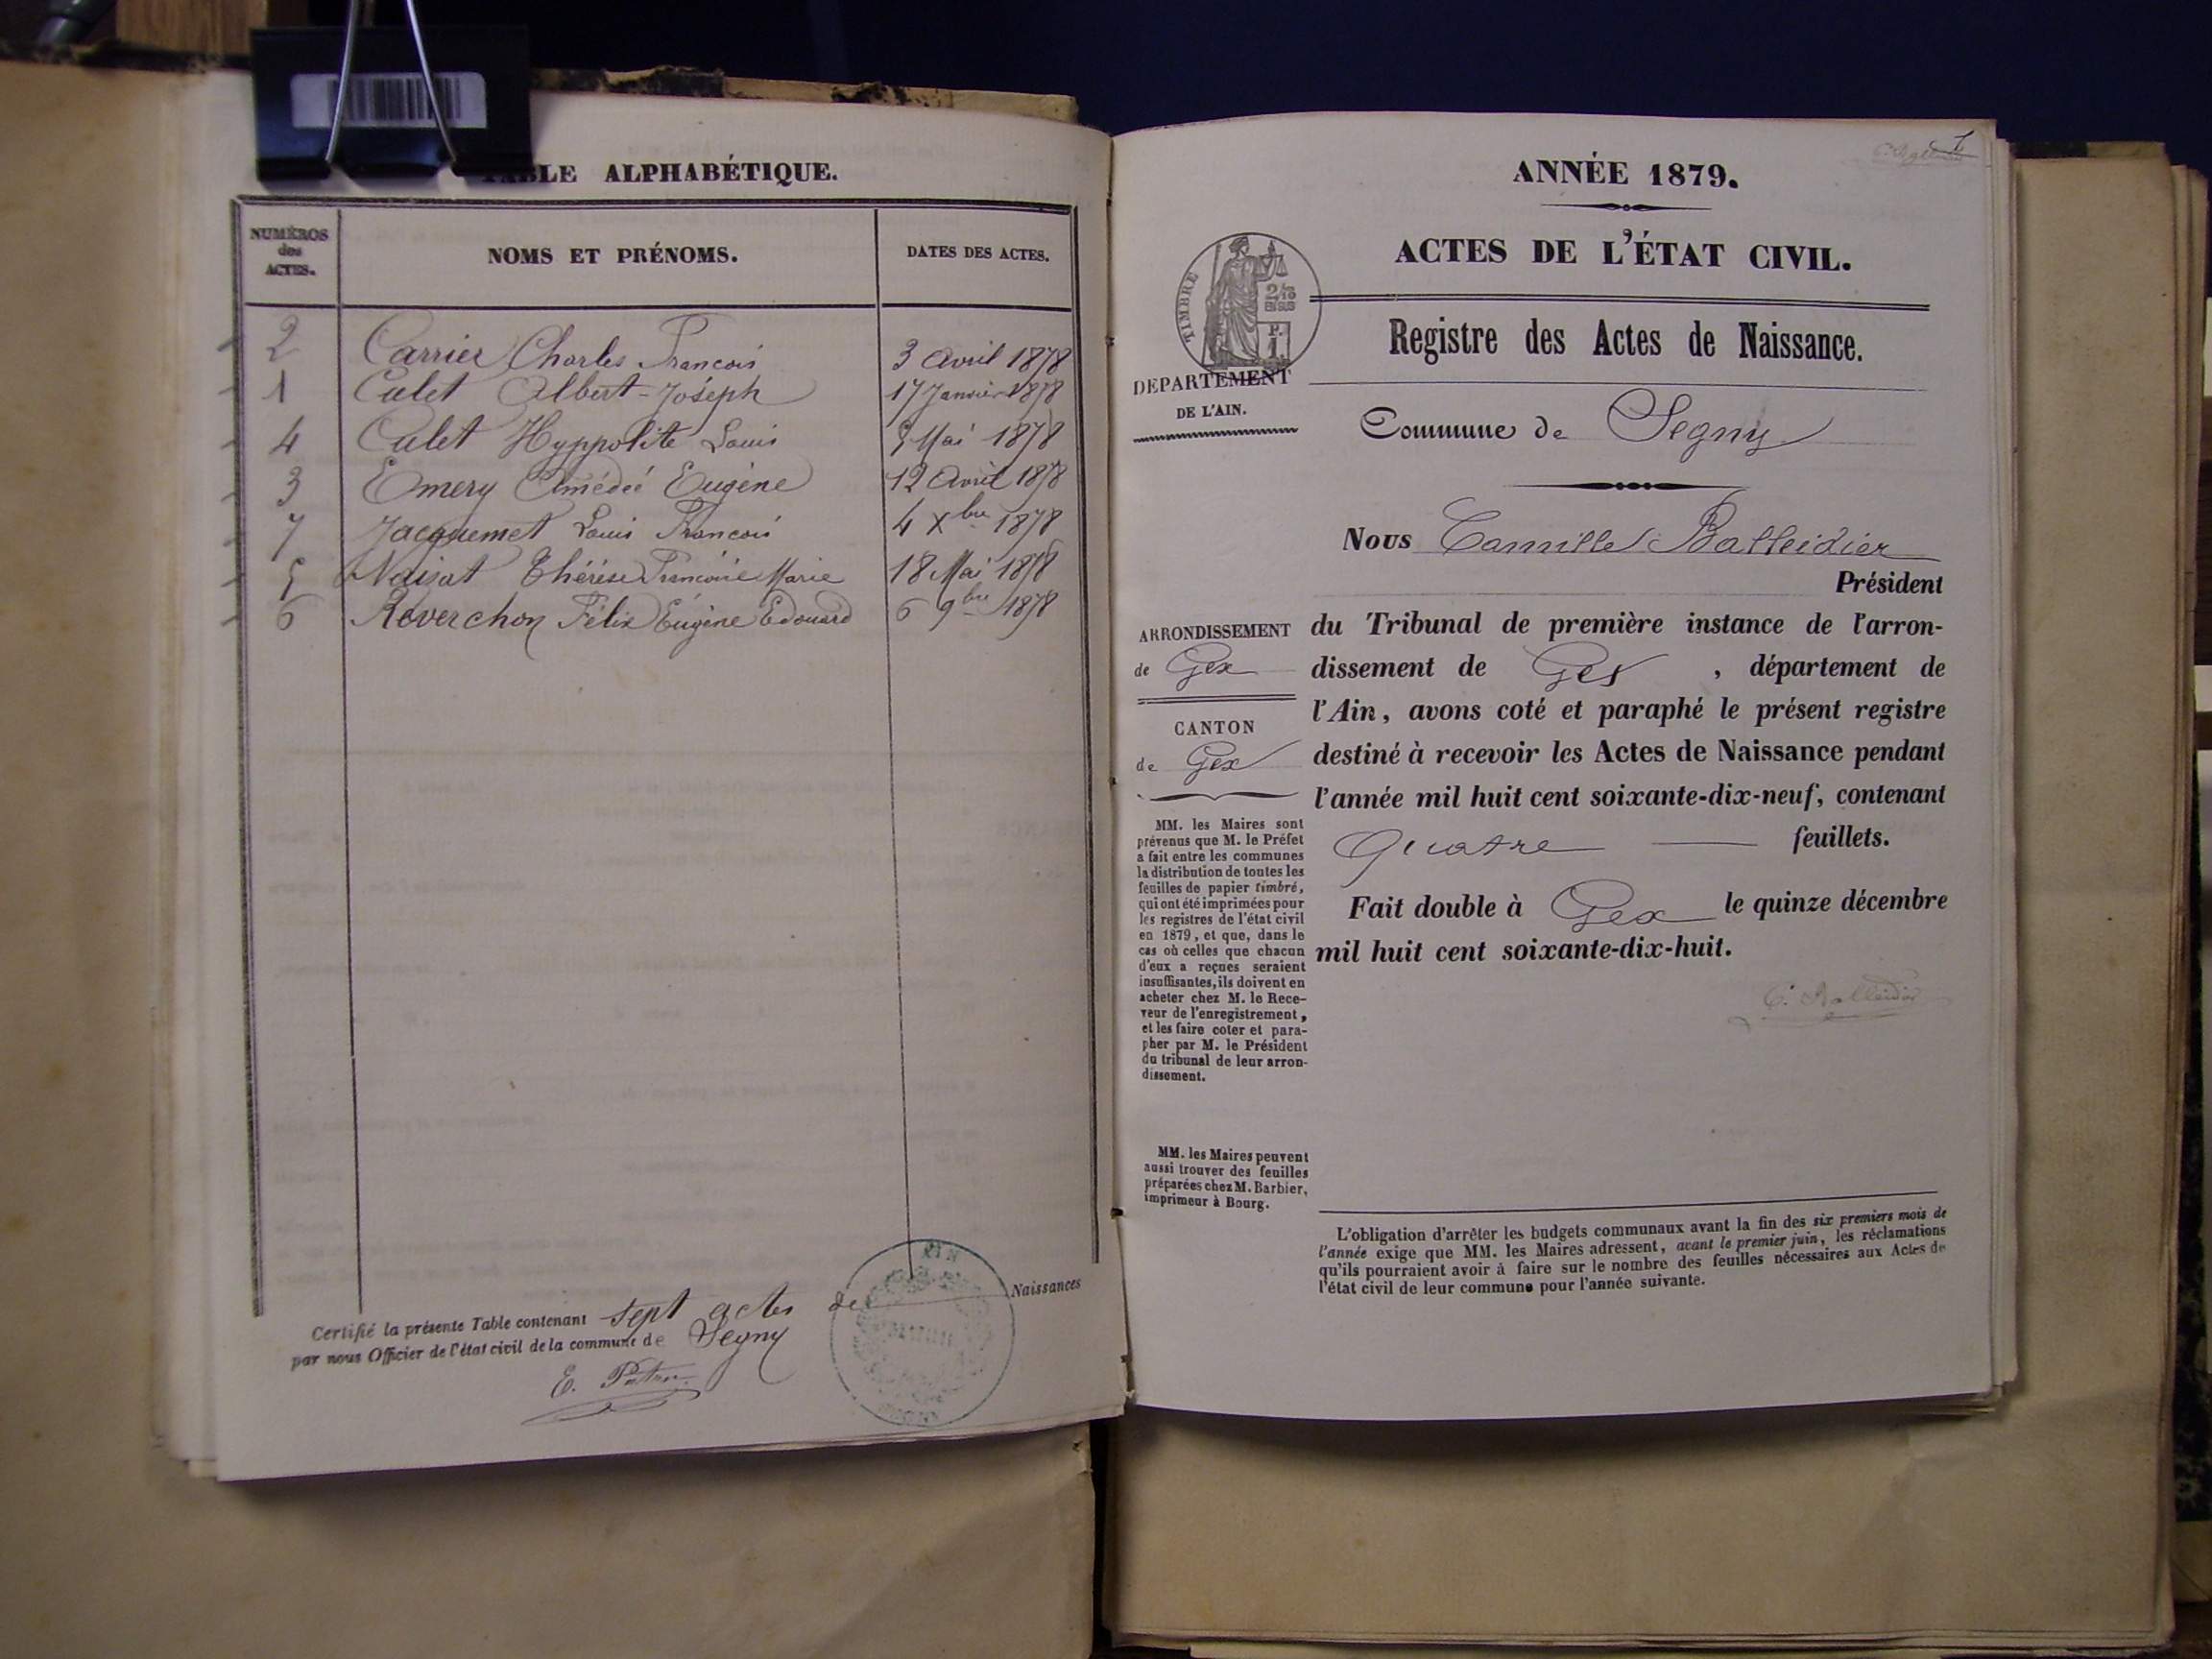 TABLE ALPHABÉTIQUE.
NUMÉROS des ACTES.
NOMS ET PRÉNOMS.
DATES DES ACTES.
2 Carrier Charles François 3 avril 1878
1 Calet Albert-Joseph 17 Janvier 1878
4 Calet Hyppolite Louis 5 Mai 1878
3 Emery Amédée Eugène 12 avril 1878
7 Jacquemet Louis François 4 Xbre 1878
5 Naisat Thérèse Francoise Marie 18 Mai 1878
6 Reverchon Félix Eugène Edouard 6 9bre 1878
Certifié la présente Table contenant sept actes de Naissances
par nous Officier de l'état civil de la commune de Segny
E.
ANNÉE 1879.
ACTES DE L'ÉTAT CIVIL.
TIMBRE
2/10
EN SUS
Registre des Actes de Naissance.
DEPARTEMENT
DE L'AIN.
Commune de Segny
Nous Camille Balleidier
Président
du Tribunal de première instance de l'arron-
dissement de Gex, département de
l'Ain, avons coté et paraphé le présent registre
destiné à recevoir les Actes de Naissance pendant
l'année mil huit cent soixante-dix-neuf, contenant
Quatre feuillets.
Fait double à Gex le quinze décembre
mil huit cent soixante-dix-huit.
C. Balleidier
ARRONDISSEMENT
de Gex
CANTON
de Gex
MM. les Maires sont
prévenus que M. le Préfet
a fait entre les communes
la distribution de toutes les
feuilles de papier timbré,
qui ont été imprimées pour
les registres de l'état civil
en 1879, et que, dans le
cas où celles que chacun
d'eux a reçues seraient
insuffisantes, ils doivent en
acheter chez M. le Rece-
veur de l'enregistrement,
et les faire coter et para-
pher par M. le Président
du tribunal de leur arron-
dissement.
MM. les Maires peuvent
aussi trouver des feuilles
préparées chez M. Barbier,
imprimeur à Bourg.
L'obligation d'arrêter les budgets communaux avant la fin des six premiers mois de
l'année exige que MM. les Maires adressent, avant le premier juin, les réclamations
qu'ils pourraient avoir à faire sur le nombre des feuilles nécessaires aux Actes de
l'état civil de leur commune pour l'année suivante.